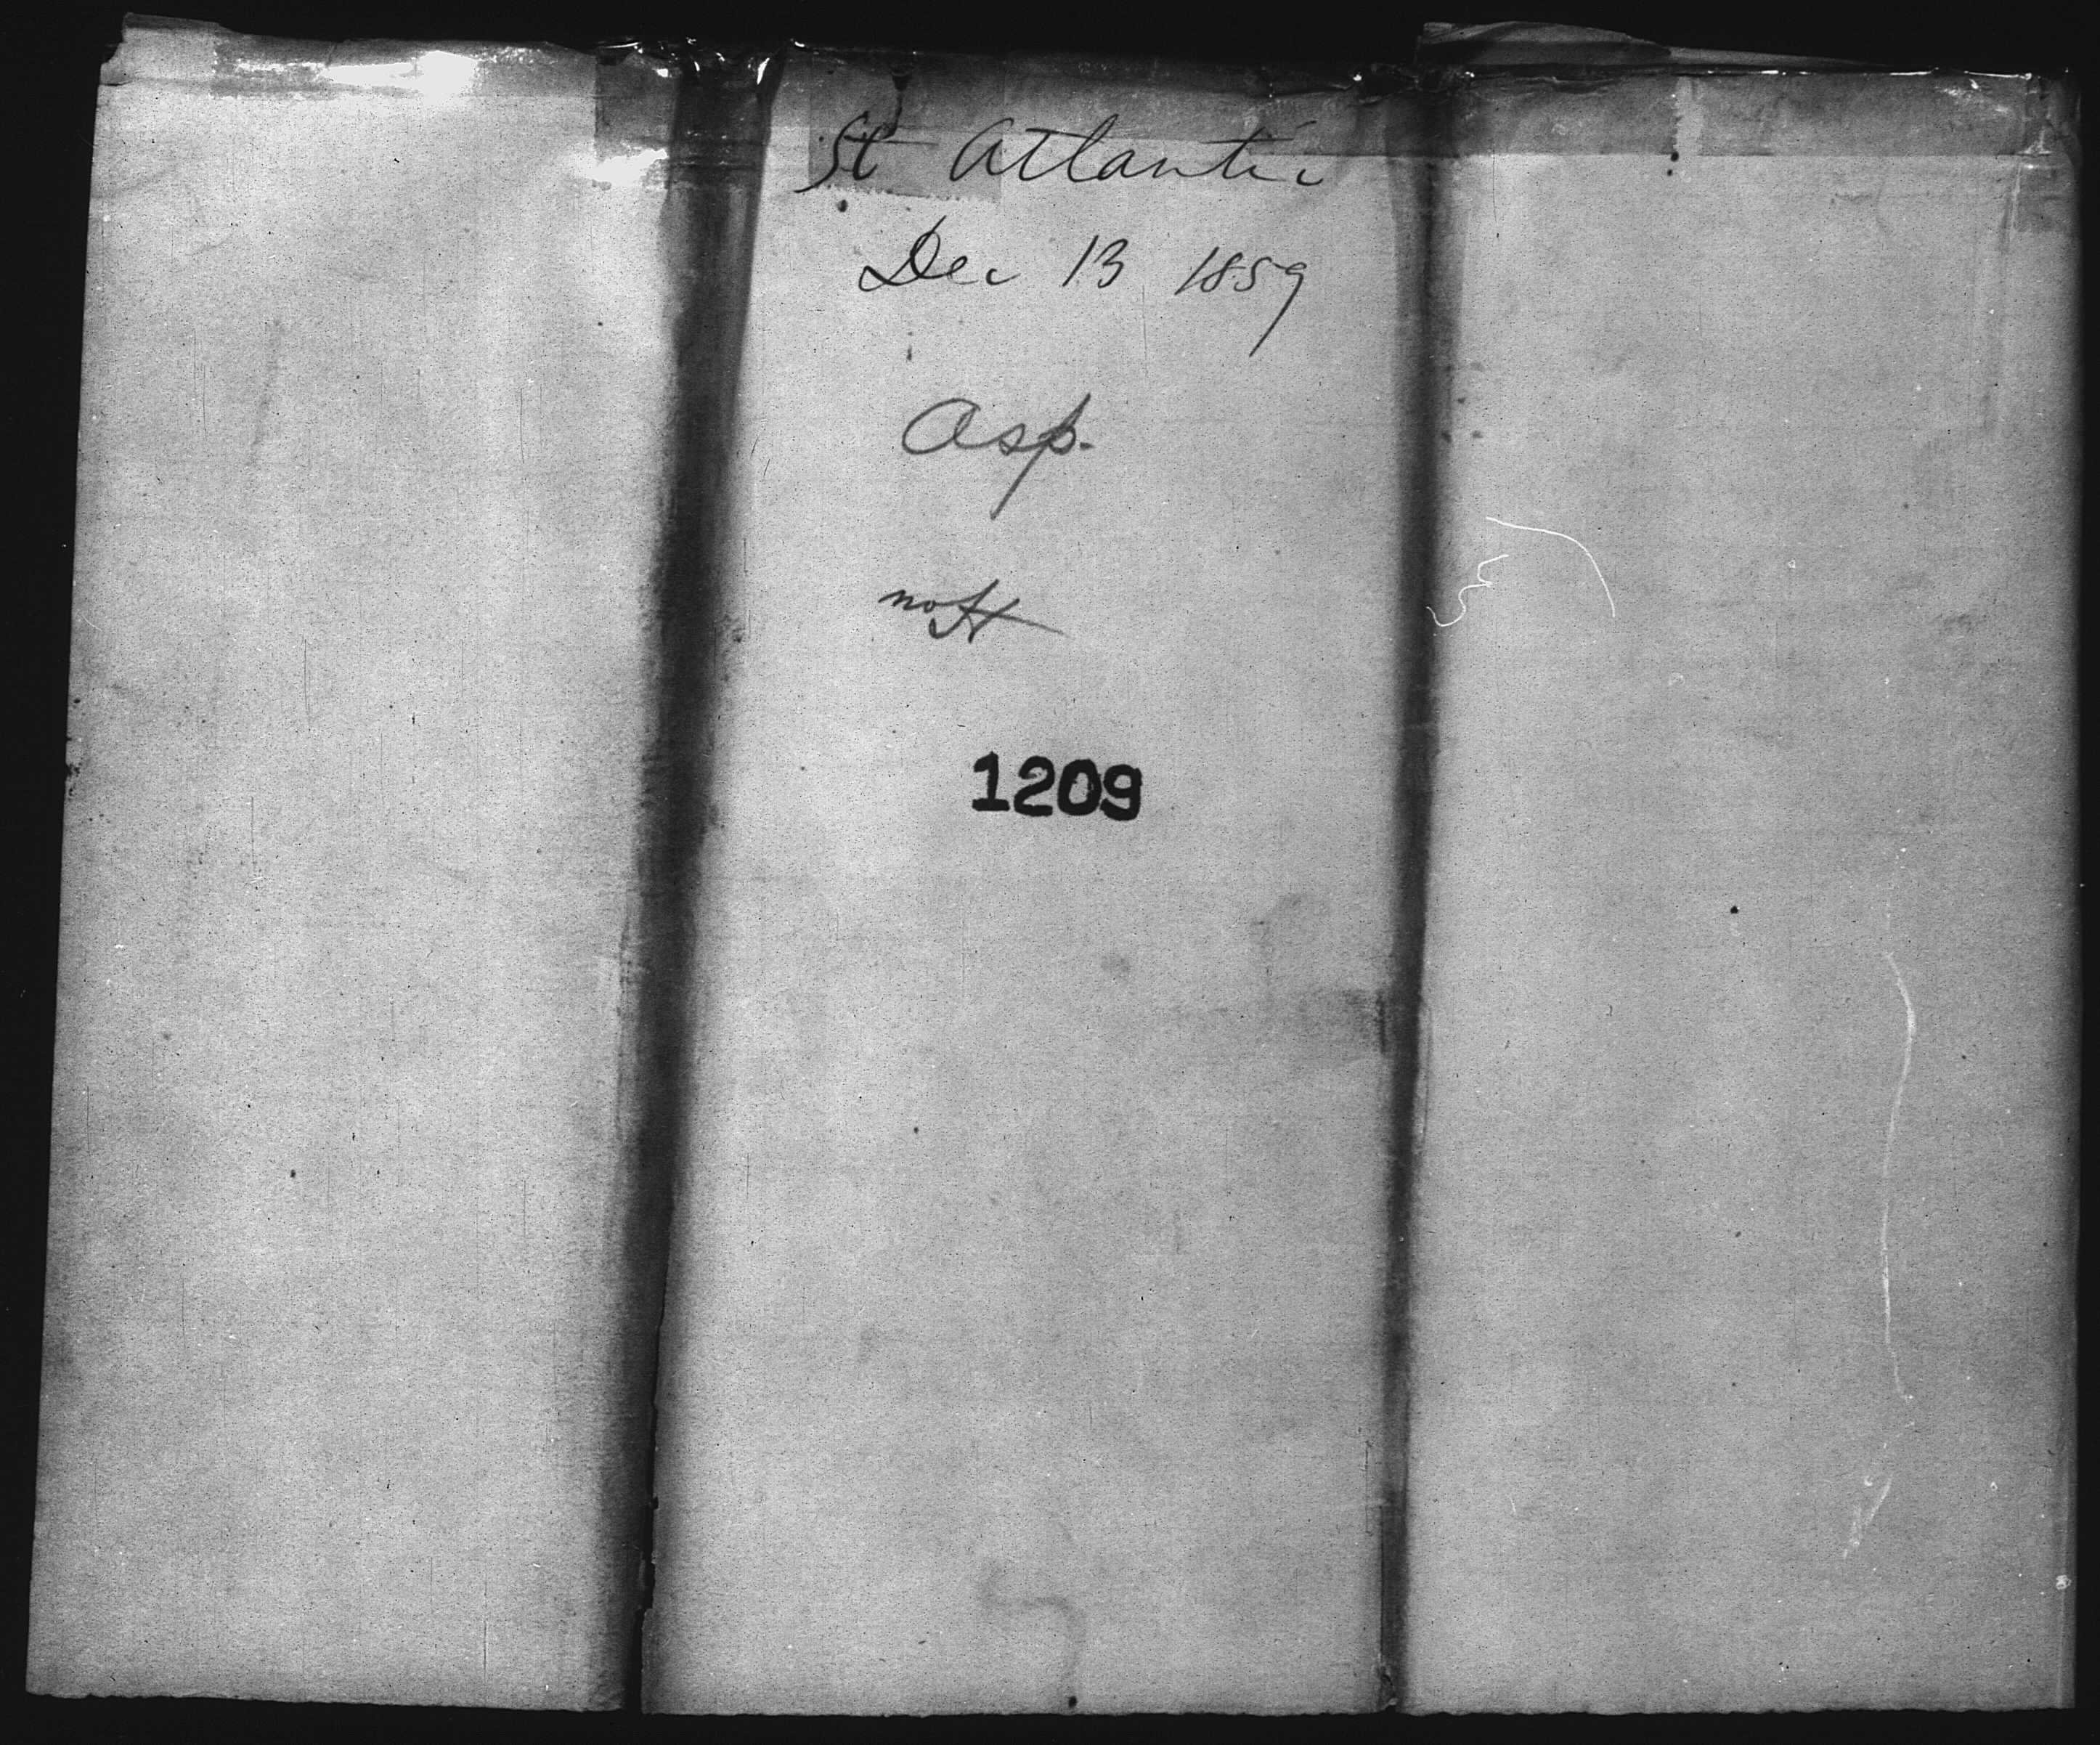 St Atlantic
Dec 13 1859
Asp.
no H
1209